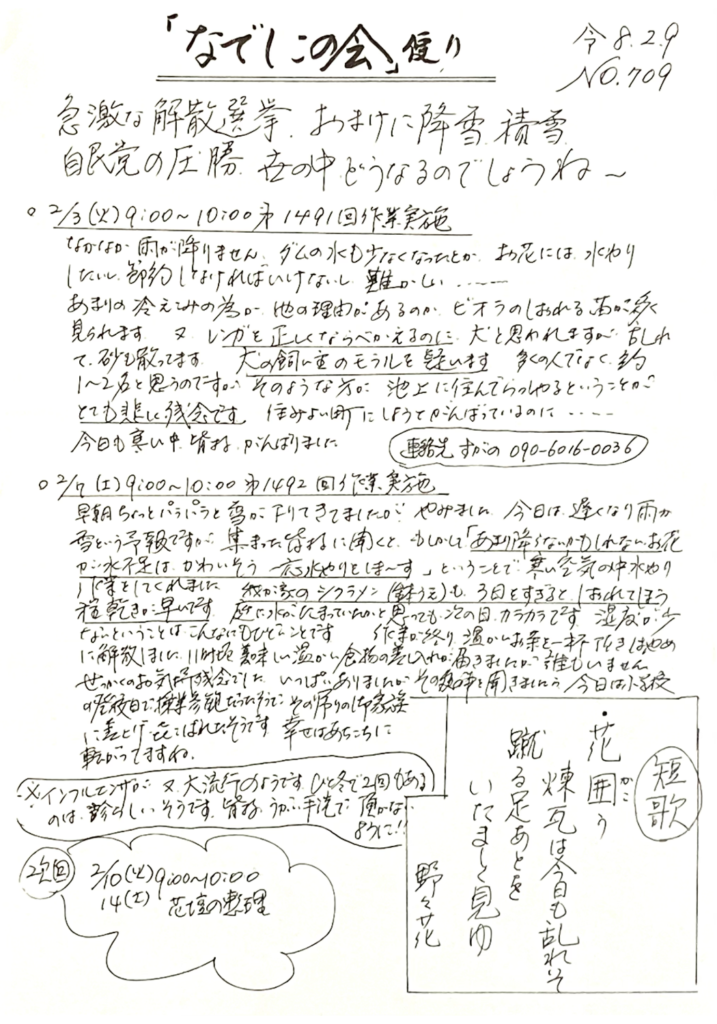 「なでしこの会」便り
令8.2.9
NO.709
急激な解散選挙、おまけに降雪、積雪
自民党の圧勝 世の中どうなるのでしょうね〜
○ 2/3(火)9:00〜10:00 第1491回作業実施
なかなか雨が降りません、ダムの水も少なくなったとか、お花には、水やり
したいし、節約しなければいけないし、難かしい……
あまりの冷えこみの為か、他の理由があるのか、ビオラのしおれる苗が多く
見られます 又、レンガを正しくならべかえるのに、犬と思われますが、乱れ
て、砂も散ってます 犬の飼い主のモラルを疑います 多くの人でなく、約
1〜2名と思うのですが、そのような方が 池上に住んでらっしゃるということが
とても悲しく残念です 住みよい町にしようとがんばっているのに……
今日も寒い中、皆様、がんばりました
連絡先 すがの 090-6016-0036
○ 2/7(土)9:00〜10:00 第1492回作業実施
早朝ちょっとパラパラと雪が下りてきてましたが やみました、今日は、遅くなり雨か
雪という予報ですが、集まった皆様に聞くと、もしかして「あまり降らないかもしれないお花
が水不足は、かわいそう 一応水やりとしま〜す」ということで、寒い空気の中水やり
作業をしてくれました 我が家のシクラメン(鉢うえ)も、3日をすぎると、しおれてしまう
程乾きが早いです 庭に水がたまっていたかと思っても、次の日、カラカラです 湿度が少
ないということは、こんなにもひどいことです 作業が終り、温かいお茶を一杯下さきはやめ
に解散しました 11時頃美味しい温かい食物の差し入れが届きましたが、誰もいません
せっかくのお気持残念でした いっぱいありましたが その後の事を聞きましたら 今日は小学校
の登校日で、授業参観だったそうで その帰りの御家族
に差上げ、よろこばれたそうです 幸せはあちこちに
転がってますね。
※インフルエンザが 又、大流行のようです、ひと冬で2回もある
のは、珍らしいそうです、皆様、うがい手洗で 頂かない
ように!!
次回
2/10(火)9:00〜10:00
14(土) 花壇の整理
短歌
・花囲う
かこ
煉瓦は今日も乱れいそ
蹴る足あとを
いたましと見ゆ
野々花